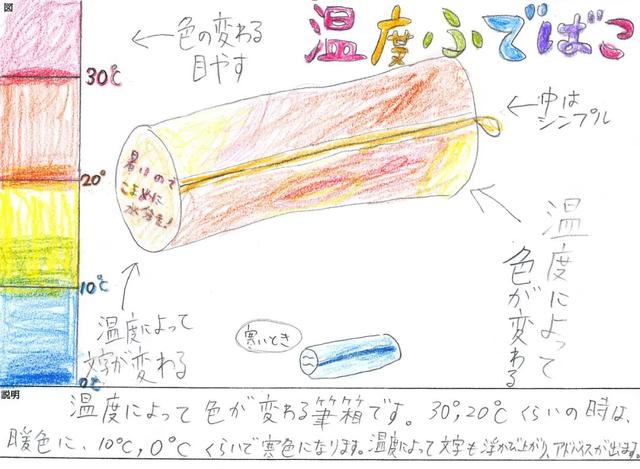 図
温度ふでばこ
← 色の変わる
目やす
30℃
20°
10℃
0℃
← 中は
シンプル
暑いので
こまめに
水分を!
温度によって
色が変わる
温度によって
文字が変わる
寒いとき
説明
温度によって色が変わる筆箱です。30°,20℃くらいの時は、
暖色に、10℃,0℃くらいで寒色になります。温度によって文字も浮かび上がり、アドバイスが出ます。